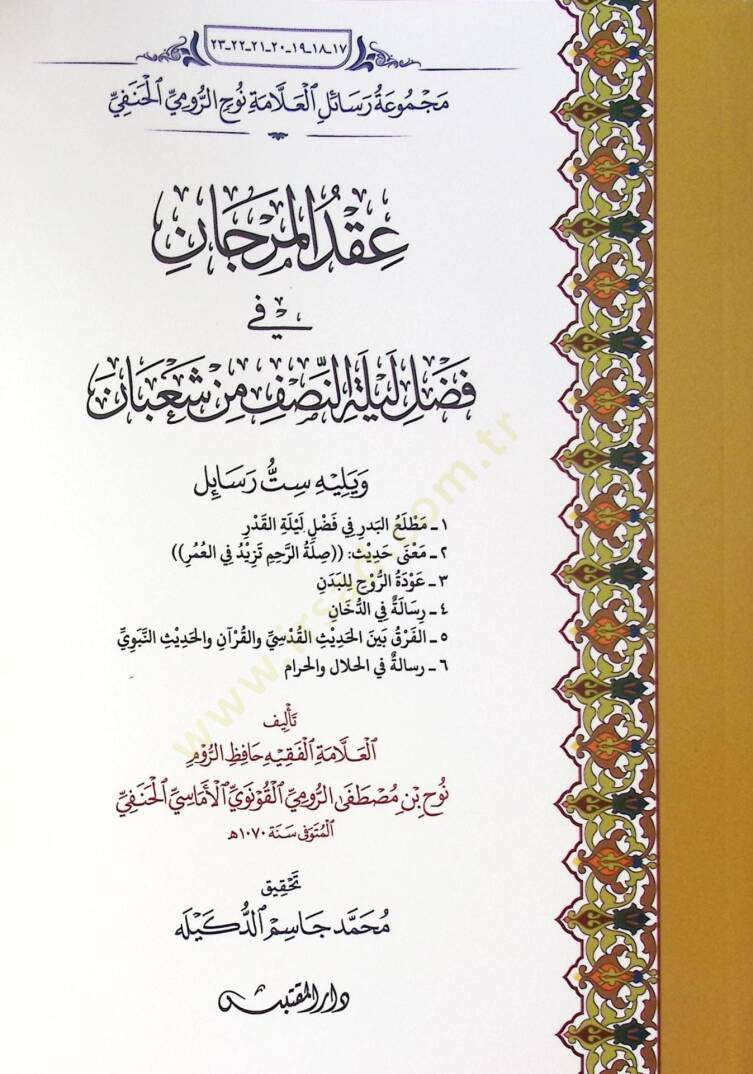 ١٧-١٨-١٩-٢٠-٢١-٢٢-٢٣
مَجْمُوعَةُ رَسَائِلِ الْعَلَّامَةِ نُوحٍ الرُّومِيِّ الْحَنَفِيِّ
عِقْدُ المَرْجَانِ
فِي
فَضْلِ لَيْلَةِ النِّصْفِ مِنْ شَعْبَانَ
وَيَلِيهِ سِتُّ رَسَائِل
١- مَطْلَعُ البَدرِ فِي فَضْلِ لَيْلَةِ القَدْرِ
٢- مَعْنَى حَدِيْث: ((صِلَةُ الرَّحِمِ تَزِيْدُ فِي العُمُرِ))
٣- عَوْدَةُ الرُّوْحِ لِلبَدَنِ
٤- رِسَالَةٌ فِي الدُّخَانِ
٥- الفَرْقُ بَينَ الحَدِيْثِ القُدْسِيِّ والقُرْآنِ والحَدِيْثِ النَّبَوِيِّ
٦- رسالةٌ في الحلال والحرام
تَأْلِيف
الْعَلَّامَةِ الْفَقِيهِ حَافِظِ الرُّوْمِ
نُوْحِ بْنِ مُصْطَفَى الرُّومِيِّ الْقُوْنَوِيِّ الْأَمَاسِيِّ الْحَنَفِيِّ
الْمُتَوَفَّى سَنَة ١٠٧٠هـ
تَحْقِيق
مُحَمَّد جَاسِم الدُّكَيْلَه
دار المقتبس
www.irsad.com.tr